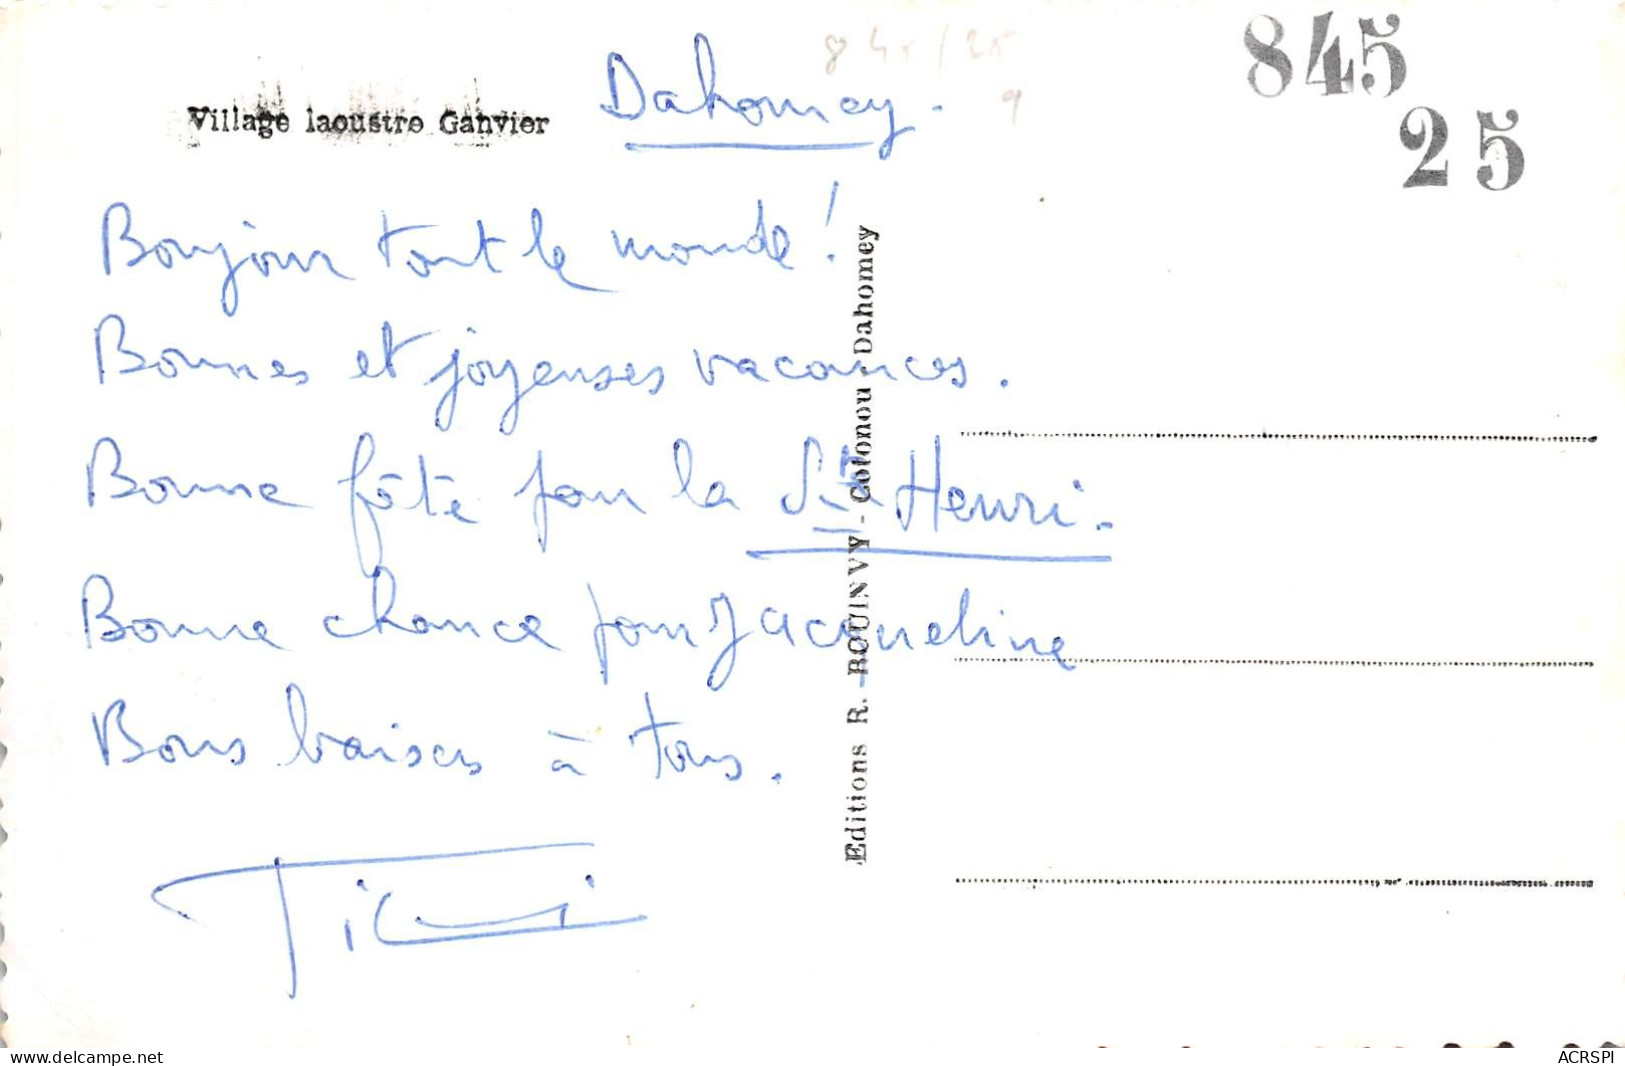 Village laoustre Ganvier
Dahomey.
845/25
9
845
25
Bonjour tout le monde!
Bonnes et joyeuses vacances.
Bonne fête pour la St Henri.
Bonne chance pour Jacqueline
Bons baisers à tous.
Editions R. BOUINVY - Cotonou - Dahomey
www.delcampe.net
ACRSPI